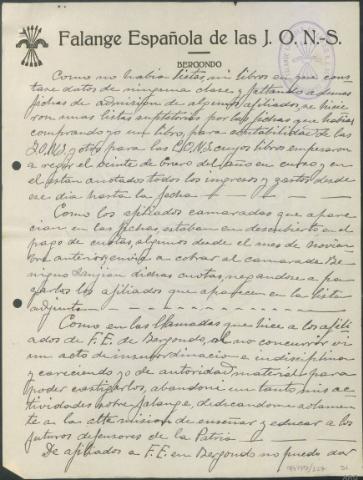 Falange Española de las J. O. N.-S.
BERGONDO
Como no habia listas, ni libros en que cons-
tase datos de ninguna clase y faltando ademas
fichas de admisión de algunos afiliados, se hicie-
ron unas listas supletorias por las fichas que habia,
comprando yo un libro, para contabilidad de las
J.O.N.S. y otro para las C.O.N.S. cuyos libros empezaron
a regir el veinte de Enero del año en curso, y en
el estan anotados todos los ingresos y gastos desde
ese dia hasta la fecha
Como los afiliados camaradas que apare-
cian en las fichas, estaban en descubierto en el
pago de cuotas, algunos desde el mes de Noviem-
bre anterior, envie a cobrar al camarada Be-
nigno Sanjian dichas cuotas, negandose a pa-
garlas los afiliados que aparecen en la lista
adjunta
Como en las llamadas que hice a los afili-
ados de F.E. de Bergondo, no concurrir vi
un acto de insubordinacion e indisciplina
y careciendo yo de autoridad material para
poder castigarlos, abandoné un tanto mis ac-
tividades sobre falange, dedicandome solamen-
te a la alta mision de enseñar y educar a los
futuros defensores de la Patria
De afiliados a F.E. en Bergondo no puedo dar